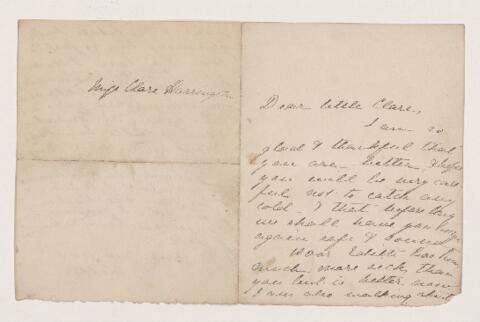 Miss Clare Harrington
Dear little Clare,
I am so
glad & thankful that
you are better, I hope
you will be very care
ful not to catch any
cold - & that before long
we shall have you
again safe & sound
Poor Edith has been
much more sick than
you but is better now
I am also